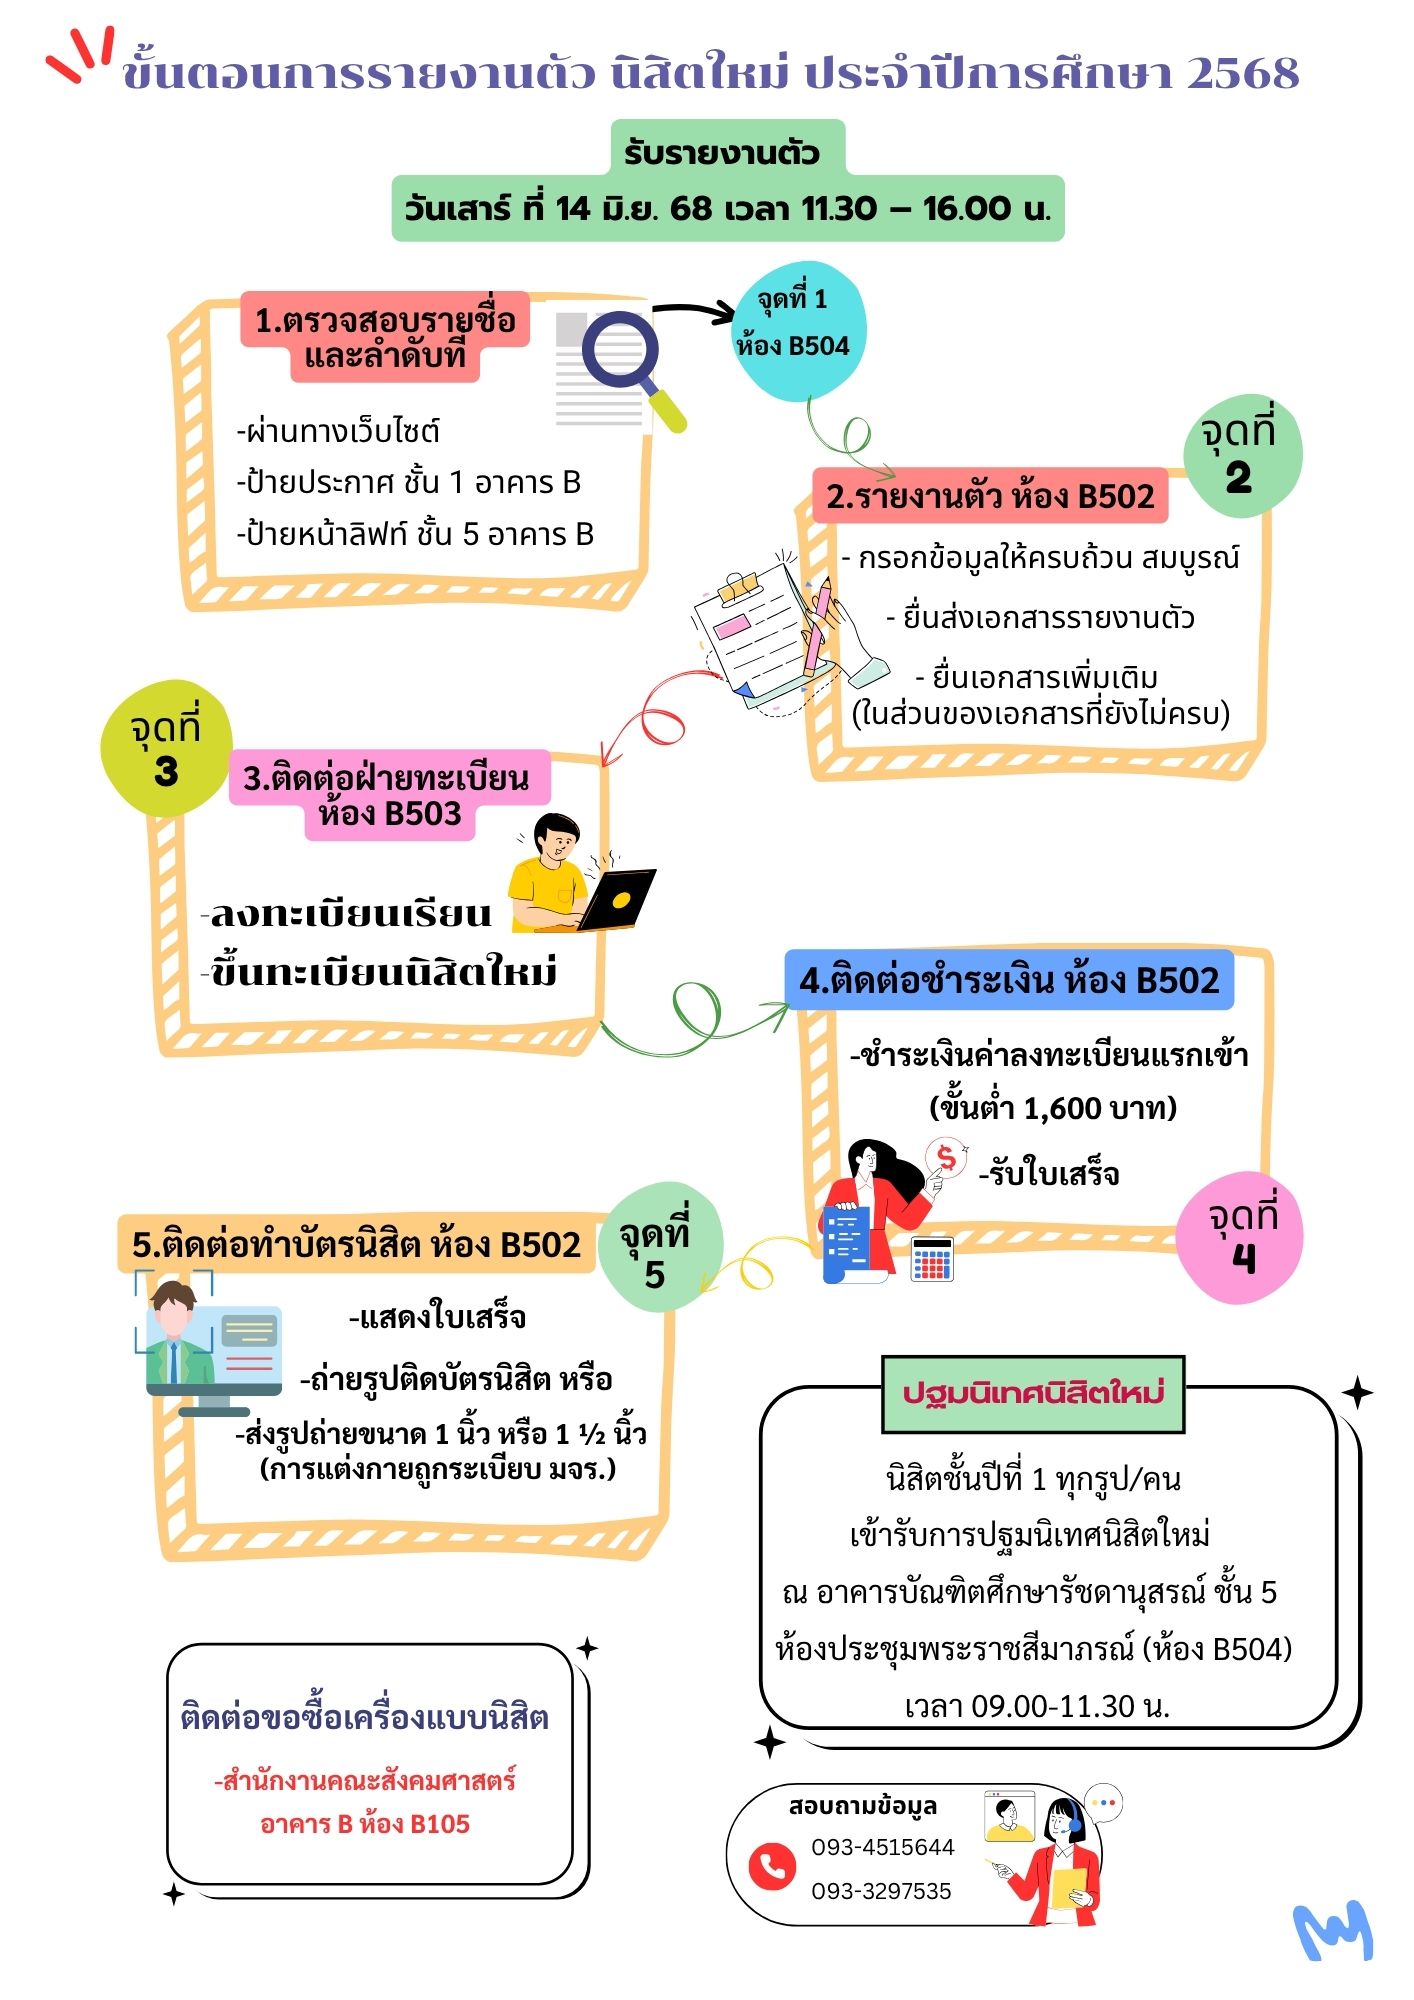 ขั้นตอนการรายงานตัว นิสิตใหม่ ประจำปีการศึกษา 2568
รับรายงานตัว
วันเสาร์ ที่ 14 มิ.ย. 68 เวลา 11.30 – 16.00 น.
1.ตรวจสอบรายชื่อ
และลำดับที่
-ผ่านทางเว็บไซต์
-ป้ายประกาศ ชั้น 1 อาคาร B
-ป้ายหน้าลิฟท์ ชั้น 5 อาคาร B
จุดที่ 1
ห้อง B504
จุดที่
2
2.รายงานตัว ห้อง B502
- กรอกข้อมูลให้ครบถ้วน สมบูรณ์
- ยื่นส่งเอกสารรายงานตัว
- ยื่นเอกสารเพิ่มเติม
(ในส่วนของเอกสารที่ยังไม่ครบ)
จุดที่
3
3.ติดต่อฝ่ายทะเบียน
ห้อง B503
-ลงทะเบียนเรียน
-ขึ้นทะเบียนนิสิตใหม่
4.ติดต่อชำระเงิน ห้อง B502
-ชำระเงินค่าลงทะเบียนแรกเข้า
(ขั้นต่ำ 1,600 บาท)
-รับใบเสร็จ
$
จุดที่
4
5.ติดต่อทำบัตรนิสิต ห้อง B502
จุดที่
5
-แสดงใบเสร็จ
-ถ่ายรูปติดบัตรนิสิต หรือ
-ส่งรูปถ่ายขนาด 1 นิ้ว หรือ 1 ½ นิ้ว
(การแต่งกายถูกระเบียบ มจร.)
ปฐมนิเทศนิสิตใหม่
นิสิตชั้นปีที่ 1 ทุกรูป/คน
เข้ารับการปฐมนิเทศนิสิตใหม่
ณ อาคารบัณฑิตศึกษารัชดานุสรณ์ ชั้น 5
ห้องประชุมพระราชสีมาภรณ์ (ห้อง B504)
เวลา 09.00-11.30 น.
ติดต่อขอซื้อเครื่องแบบนิสิต
-สำนักงานคณะสังคมศาสตร์
อาคาร B ห้อง B105
สอบถามข้อมูล
093-4515644
093-3297535